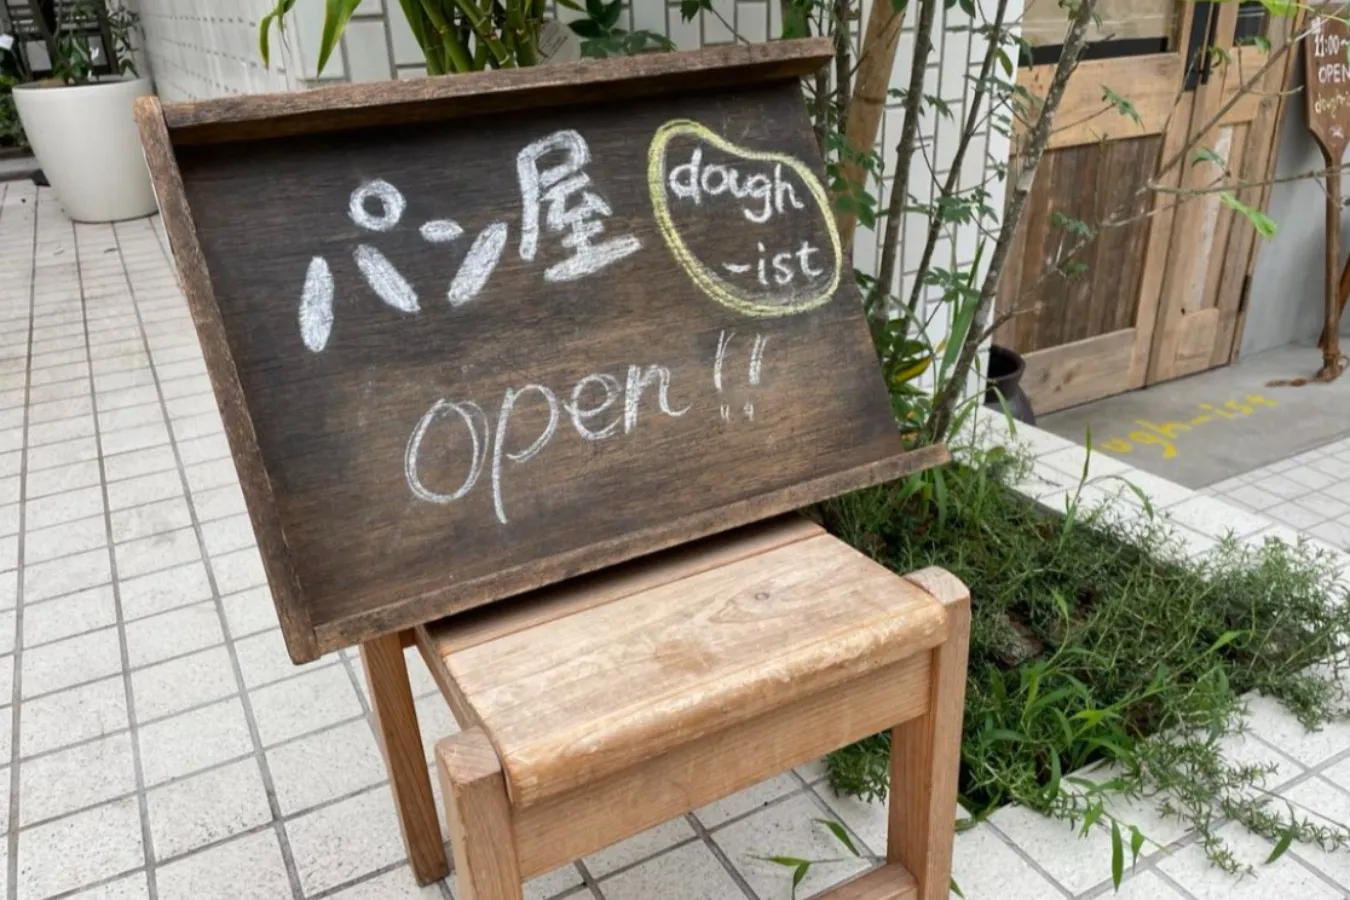 パン屋
dough
-ist
open!!
11:00~
OPEN
ugh-ist